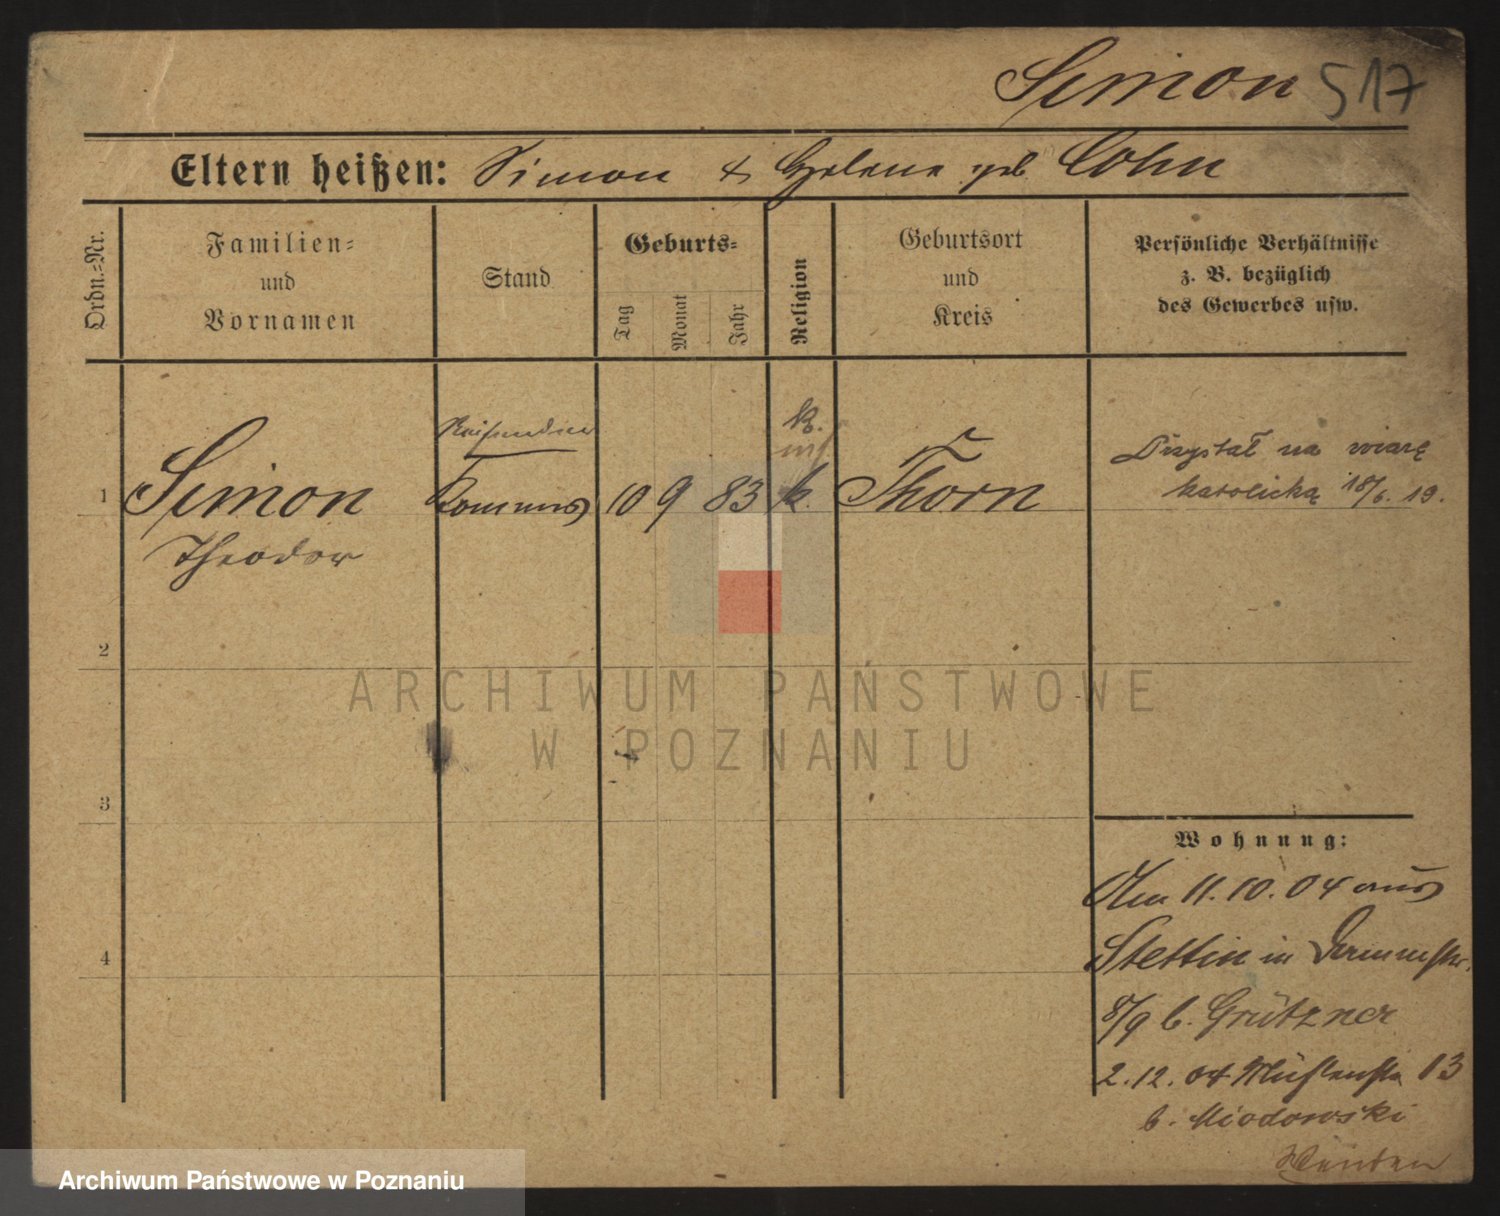 Simon 517
Eltern heißen: Simon & Helene geb Cohn
Ordn.=Nr.
Familien=
und
Vornamen
Stand
Geburts=
Tag
Monat
Jahr
Religion
Geburtsort
und
Kreis
Persönliche Verhältnisse
z. B. bezüglich
des Gewerbes usw.
Reisender
k.
1 Simon Kommis 10 9 83 k. Thorn
Theodor
Przystał na wiarę
katolicką 18/6. 19.
2
3
4
Wohnung:
Am 11. 10. 04 aus
Stettin in
8/9 b. Grützner
2. 12. 04 Mühlenstr 13
b. Miodowski
Wenden
ARCHIWUM PAŃSTWOWE
W POZNANIU
Archiwum Państwowe w Poznaniu